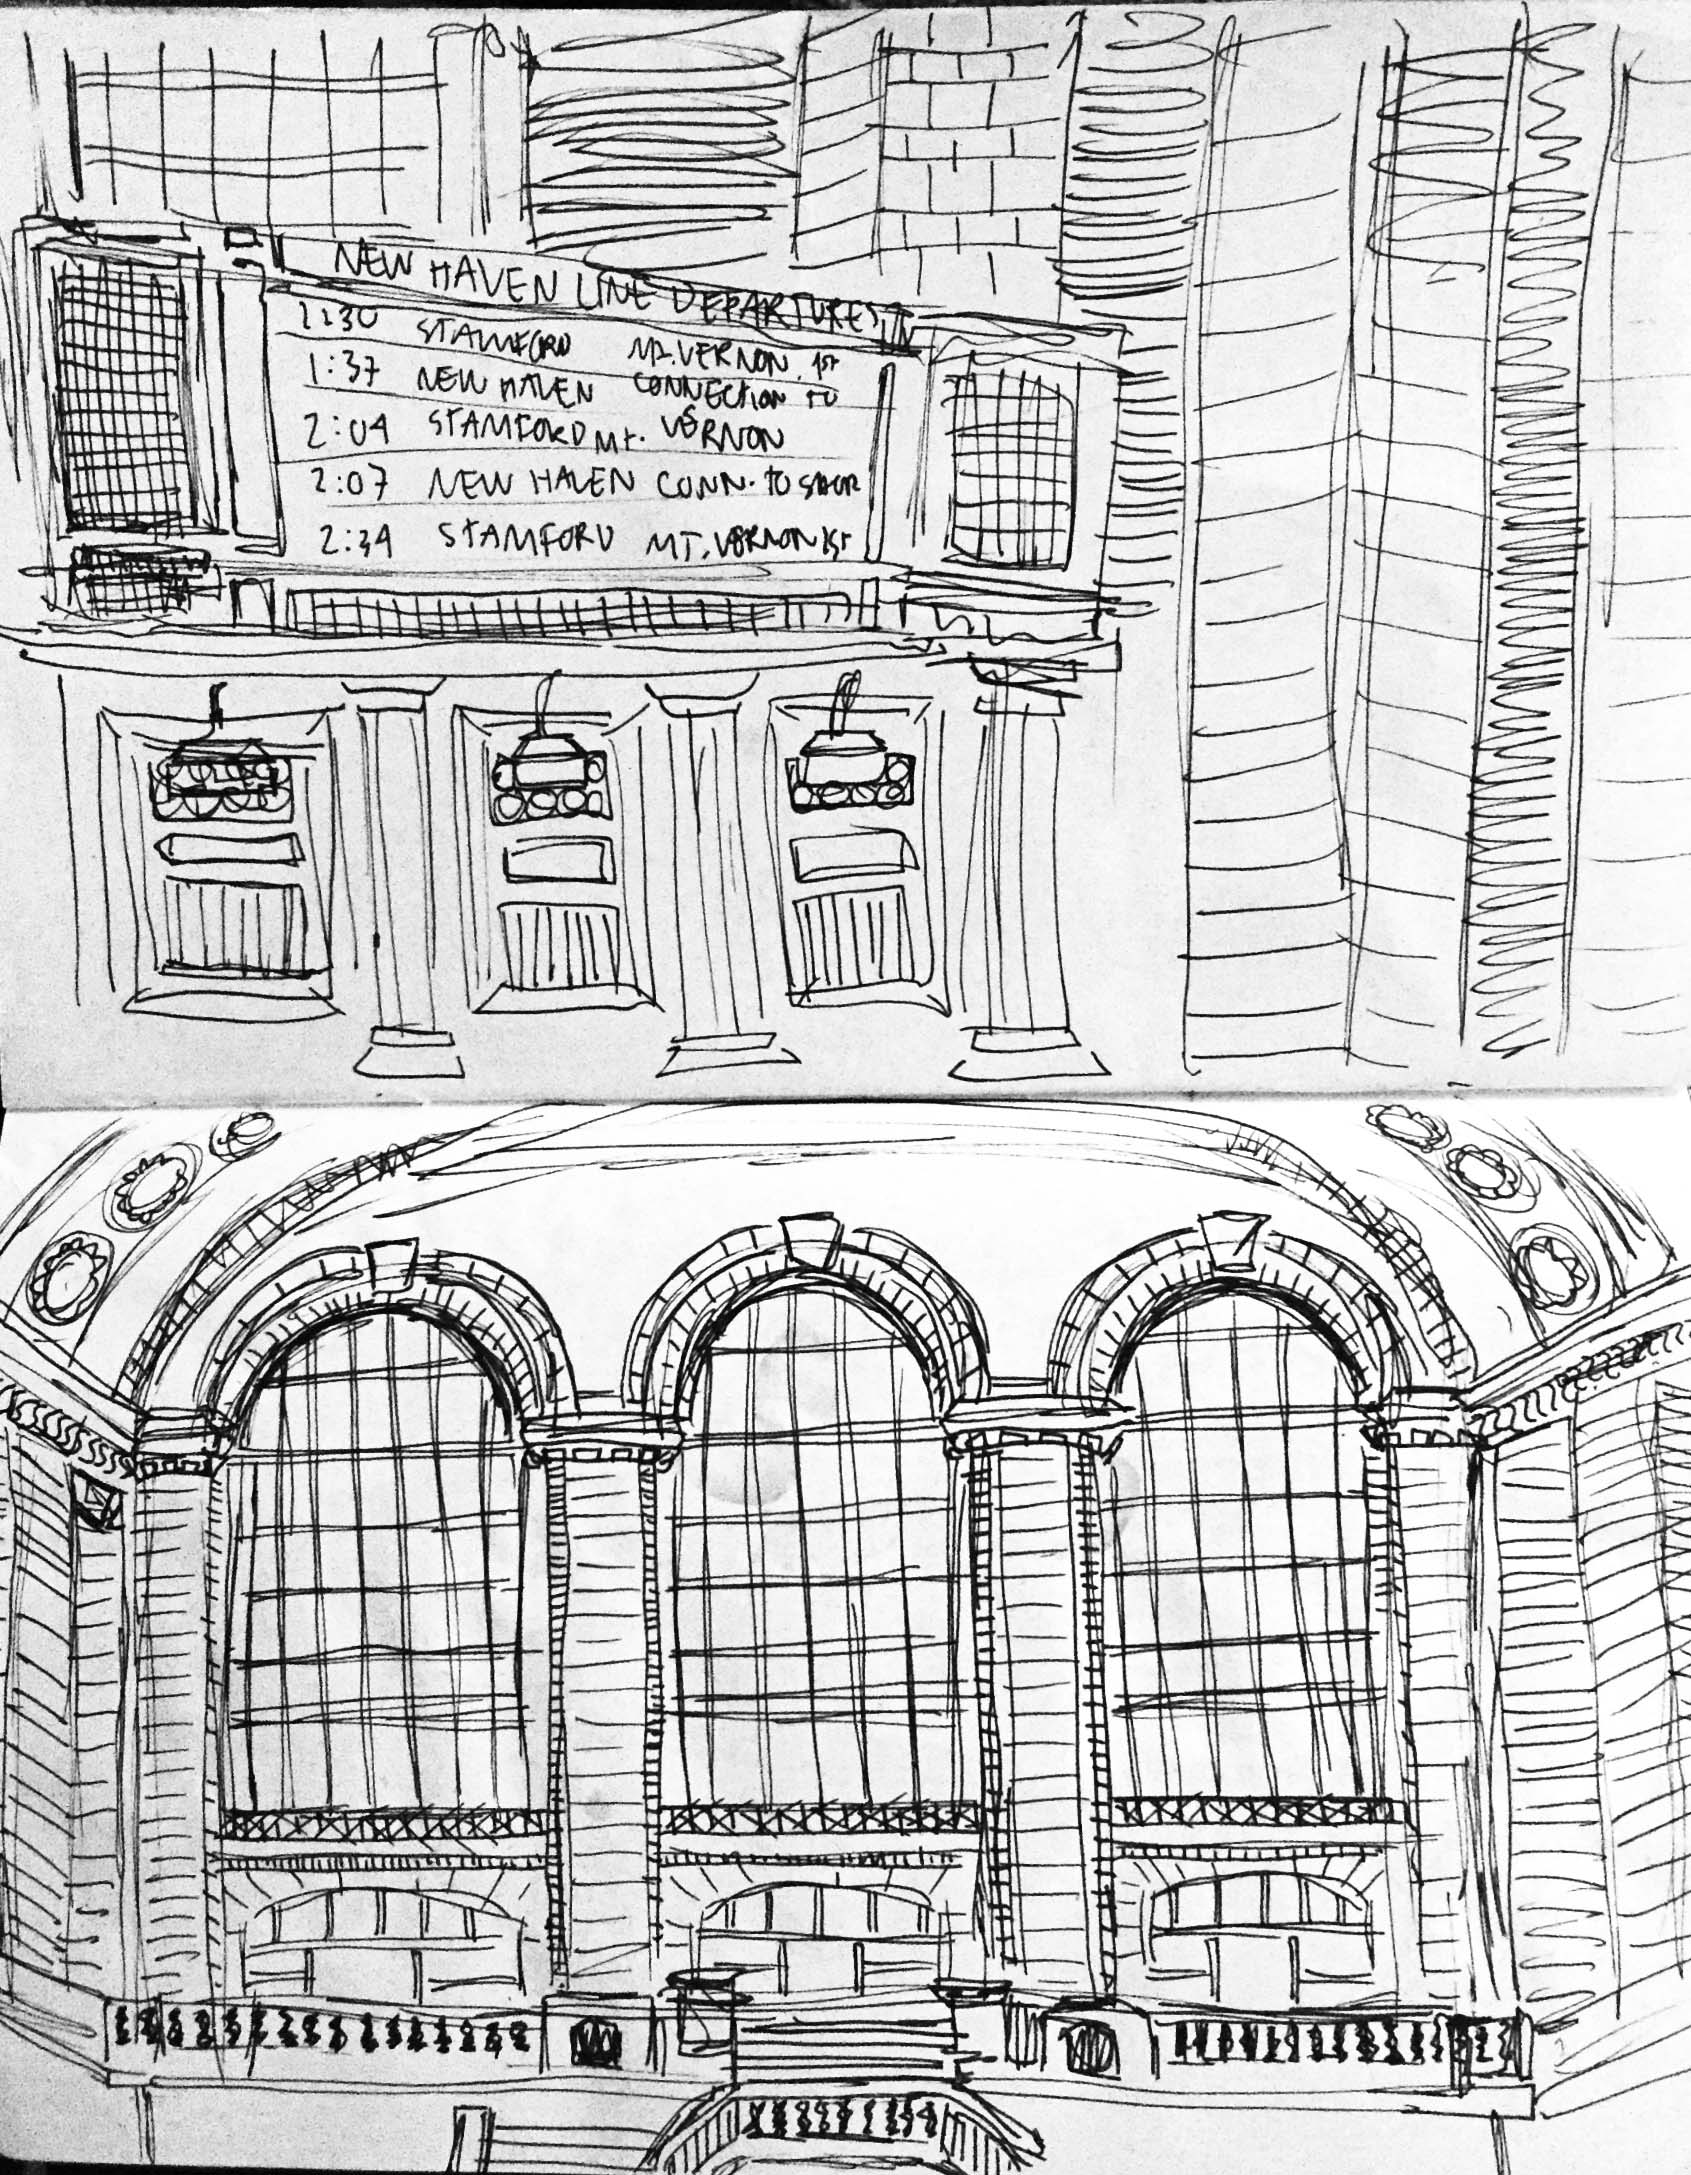 NEW HAVEN LINE DEPARTURES
1:30 STAMFORD MT. VERNON. 1ST
1:37 NEW HAVEN CONNECTION TO
2:04 STAMFORD MT. VERNON
2:07 NEW HAVEN CONN. TO
2:34 STAMFORD MT. VERNON 1ST